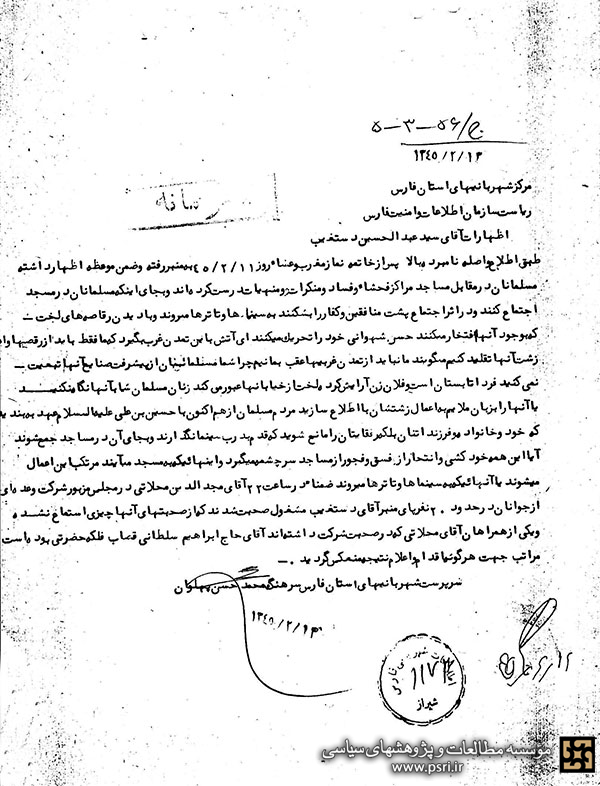 ۵-۳-۵۶/ج
۱۳۴۵/۲/۱۳
مرکز شهربانیهای استان فارس
ریاست سازمان اطلاعات و امنیت فارس
اظهارات آقای سید عبدالحسین دستغیب
طبق اطلاع واصله نامبرده بالا پس از خاتمه نماز مغرب و عشاء روز ۴۵/۲/۱۱ به منبر رفته و ضمن موعظه اظهار داشته
مسلمانان در مقابل مساجد مراکز فحشاء و فساد و منکرات و منهیات درست کرده‌اند و بجای اینکه مسلمانان در مسجد
اجتماع کنند و در اثر اجتماع پشت منافقین و کفار را بشکنند به سینماها و تاترها میروند و با دیدن رقاصه‌های لخت
که بوجود آنها افتخار میکنند حس شهوانی خود را تحریک میکنند ای آتش باین تمدن غرب بگیرد که ما فقط باید از رقصها و
زشت آنها تقلید کنیم میگویند ما نباید از تمدن غربیها عقب بمانیم چرا شما مسلمانان از پیشرفت صنایع آنها تبعیت
نمی‌کنید فردا تابستان است و فلان زن آرایش کرده و لخت از خیابانها عبور می کند زنان مسلمان شما به آنها نگاه نکنید
یا آنها را بزبان ملایم به اعمال زشتشان با اطلاع سازید مردم مسلمان از هم اکنون با حسین بن علی علیه السلام عهد به بندید
که خود و خانواده و فرزندانتان بلکه رفقایتان را مانع شوید که قدم به درب سینما نگذارند و بجای آن در مساجد جمع شوند
آیا این همه خود کشی و انتحار از فسق و فجور از مساجد سرچشمه میگیرد و اینهائیکه به مسجد میآیند مرتکب این اعمال
میشوند یا آنهائیکه به سینماها و تاترها میروند ضمنا در ساعت ۲۲ آقای مجدالدین محلاتی در مجلس مزبور شرکت و عده‌ای
از جوانان در حدود ۲۰ نفر پای منبر آقای دستغیب مشغول صحبت شدند که از صحبتهای آنها چیزی استماع نشده
و یکی از همراهان آقای محلاتی که در صحبت شرکت داشته‌اند آقای حاج ابراهیم سلطانی قصاب فلکه حضرتی بوده است
مراتب جهت هر گونه اقدام و اعلام نتیجه منعکس گردید
سرپرست شهربانیهای استان فارس سرهنگ محمد حسن پهلوان
۱۳۴۵/۲/۱۳
۱۱۷۲
شیراز
موسسه مطالعات و پژوهشهای سیاسی
www.psri.ir